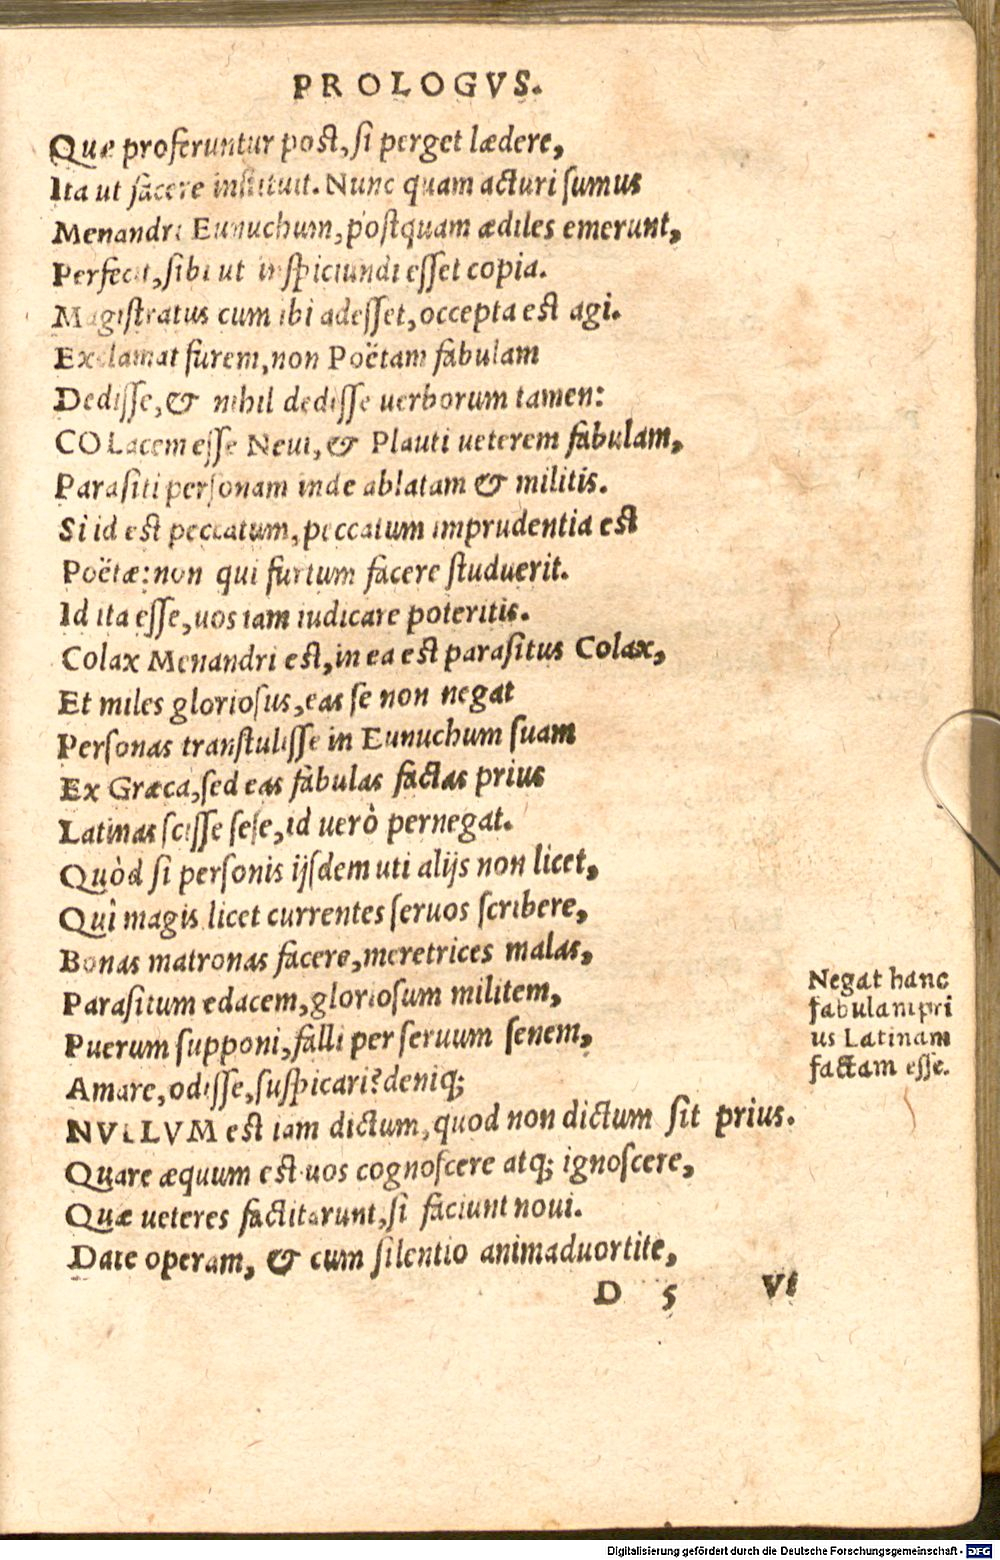 PROLOGVS.
Quæ proferuntur post, si perget lædere,
Ita ut facere instituit. Nunc quam acturi sumus
Menandri Eunuchum, postquam ædiles emerunt,
Perfecit, sibi ut inspiciundi esset copia.
Magistratus cum ibi adesset, occepta est agi.
Exclamat furem, non Poëtam fabulam
Dedisse, & nihil dedisse uerborum tamen:
COLacem esse Neui, & Plauti ueterem fabulam,
Parasiti personam inde ablatam & militis.
Si id est peccatum, peccatum imprudentia est
Poëtæ: non qui furtum facere studuerit.
Id ita esse, uos iam iudicare poteritis.
Colax Menandri est, in ea est parasitus Colax,
Et miles gloriosus, eas se non negat
Personas transtulisse in Eunuchum suam
Ex Græca, sed eas fabulas factas prius
Latinas scisse sese, id uerò pernegat.
Quòd si personis ijsdem uti alijs non licet,
Quî magis licet currentes seruos scribere,
Bonas matronas facere, meretrices malas,
Parasitum edacem, gloriosum militem,
Puerum supponi, falli per seruum senem,
Amare, odisse, suspicari? deniq;
NVLLVM est iam dictum, quod non dictum sit prius.
Quare æquum est uos cognoscere atq; ignoscere,
Quæ ueteres factitarunt, si faciunt noui.
Date operam, & cum silentio animaduortite,
Negat hanc
fabulam pri
us Latinam
factam esse.
D 5 Vt
Digitalisierung gefördert durch die Deutsche Forschungsgemeinschaft - DFG